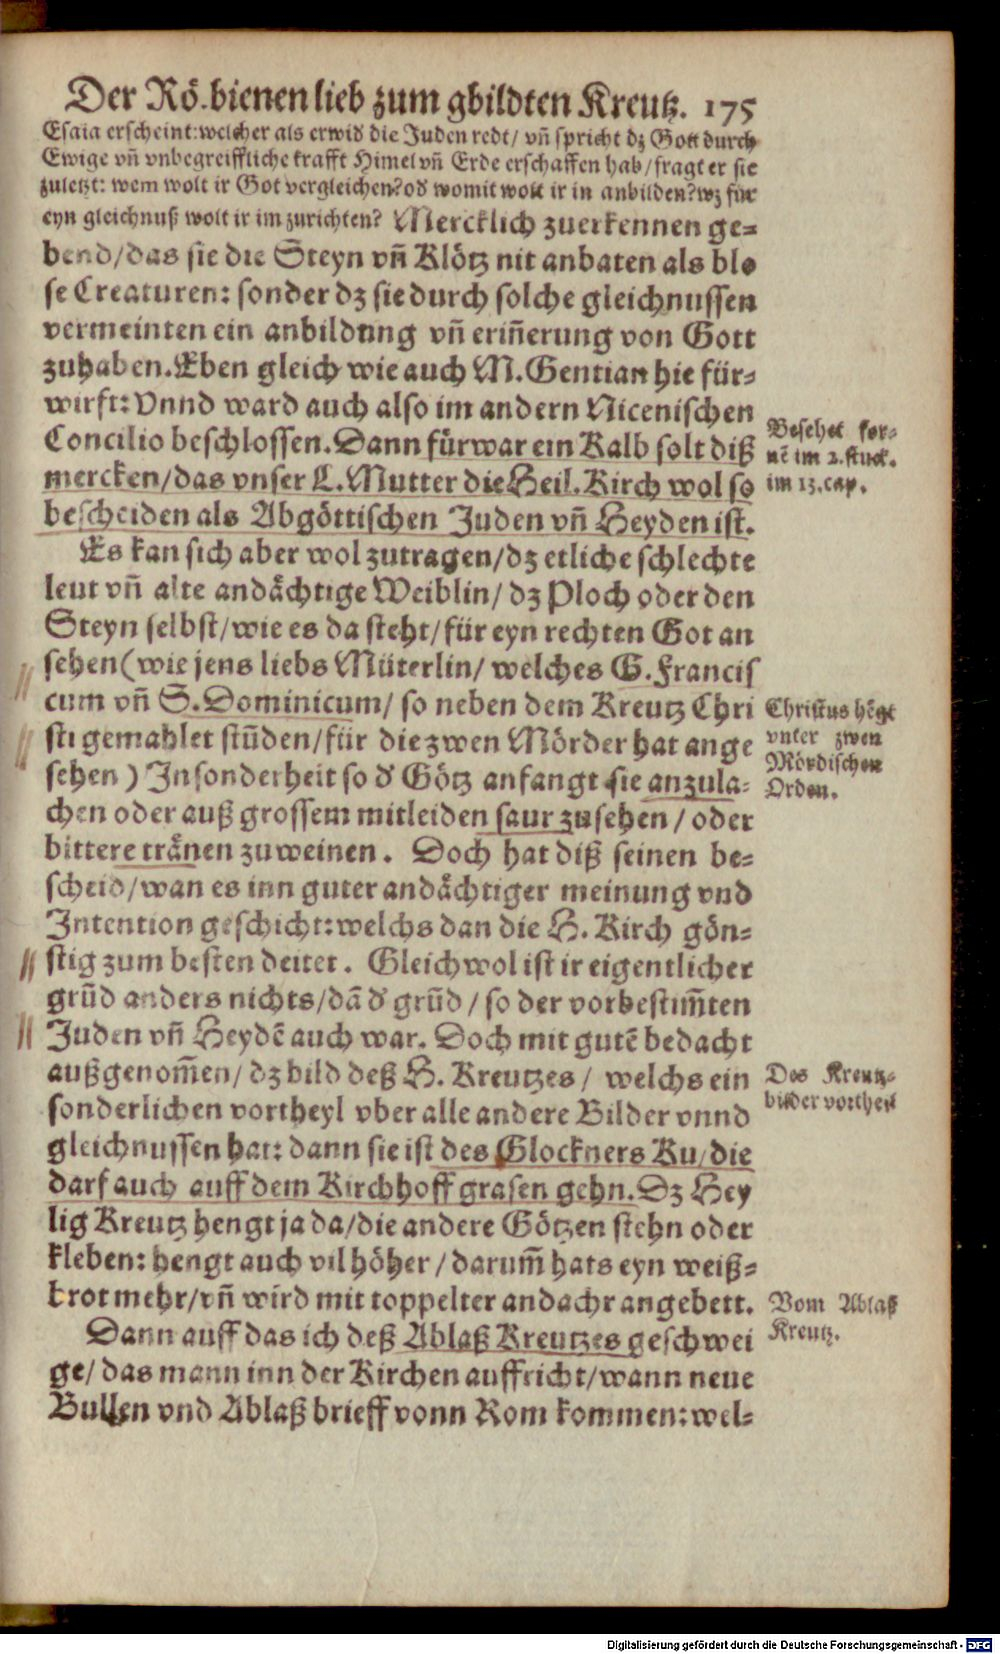 Der Rö. bienen lieb zum gbildten Kreutz. 175
Esaia erscheint: welcher als er wid̕ die Juden redt/ vñ spricht dz Gott durch
Ewige vñ vnbegreiffliche krafft Himel vñ Erde erschaffen hab/ fragt er sie
zuletzt: wem wolt ir Got vergleichen? od̕ womit wolt ir in anbilden? wz für
eyn gleichnuß wolt ir im zurichten? Mercklich zuerkennen ge⸗
bend/ das sie die Steyn vñ Klötz nit anbaten als blo
se Creaturen: sonder dz sie durch solche gleichnussen
vermeinten ein anbildung vñ eriñerung von Gott
zuhaben. Eben gleich wie auch M. Gentian hie für⸗
wirft: Vnnd ward auch also im andern Nicenischen
Concilio beschlossen. Dann fürwar ein Kalb solt diß
mercken/ das vnser L. Mutter die Heil. Kirch wol so
bescheiden als Abgöttischen Juden vñ Heyden ist.
Besehet for⸗
nē im 2. stuck.
im 13. cap.
Es kan sich aber wol zutragen/ dz etliche schlechte
leut vñ alte andächtige Weiblin/ dz Ploch oder den
Steyn selbst/ wie es da steht/ für eyn rechten Got an
sehen (wie jens liebs Müterlin/ welches S. Francis
cum vñ S. Dominicum/ so neben dem Kreutz Chri
sti gemahlet stūden/ für die zwen Mörder hat ange
sehen) Insonderheit so d̕ Götz anfangt sie anzula⸗
chen oder auß grossem mitleiden saur zusehen/ oder
bittere tränen zuweinen. Doch hat diß seinen be⸗
scheid/ wan es inn guter andächtiger meinung vnd
Intention geschicht: welchs dan die H. Kirch gön⸗
stig zum besten deitet. Gleichwol ist ir eigentlicher
grūd anders nichts/ dā d̕ grūd/ so der vorbestim̄ten
Juden vñ Heydē auch war. Doch mit gutē bedacht
außgenom̄en/ dz bild deß H. Kreutzes/ welchs ein
sonderlichen vortheyl vber alle andere Bilder vnnd
gleichnussen hat: dann sie ist des Glockners Ku/ die
darf auch auff dem Kirchhoff grasen gehn. Dz Hey
lig Kreutz hengt ja da/ die andere Götzen stehn oder
kleben: hengt auch vil höher/ darum̄ hats eyn weiß⸗
brot mehr/ vñ wird mit toppelter andacht angebett.
Christus hēgt
vnter zwen
Mördischen
Orden.
Des Kreutz⸗
bilder vortheil
Dann auff das ich deß Ablaß Kreutzes geschwei
ge/ das mann inn der Kirchen auffricht/ wann neue
Bullen vnd Ablaß brieff vonn Rom kommen: wel⸗
Vom Ablaß
Kreutz.
Digitalisierung gefördert durch die Deutsche Forschungsgemeinschaft - DFG